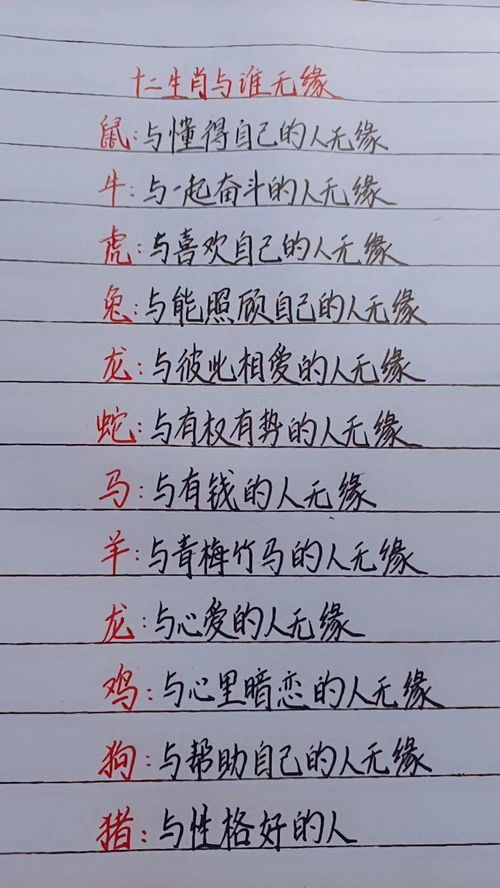 十二生肖与谁无缘
鼠:与懂得自己的人无缘
牛:与一起奋斗的人无缘
虎:与喜欢自己的人无缘
兔:与能照顾自己的人无缘
龙:与彼此相爱的人无缘
蛇:与有权有势的人无缘
马:与有钱的人无缘
羊:与青梅竹马的人无缘
龙:与心爱的人无缘
鸡:与心里暗恋的人无缘
狗:与帮助自己的人无缘
猪:与性格好的人